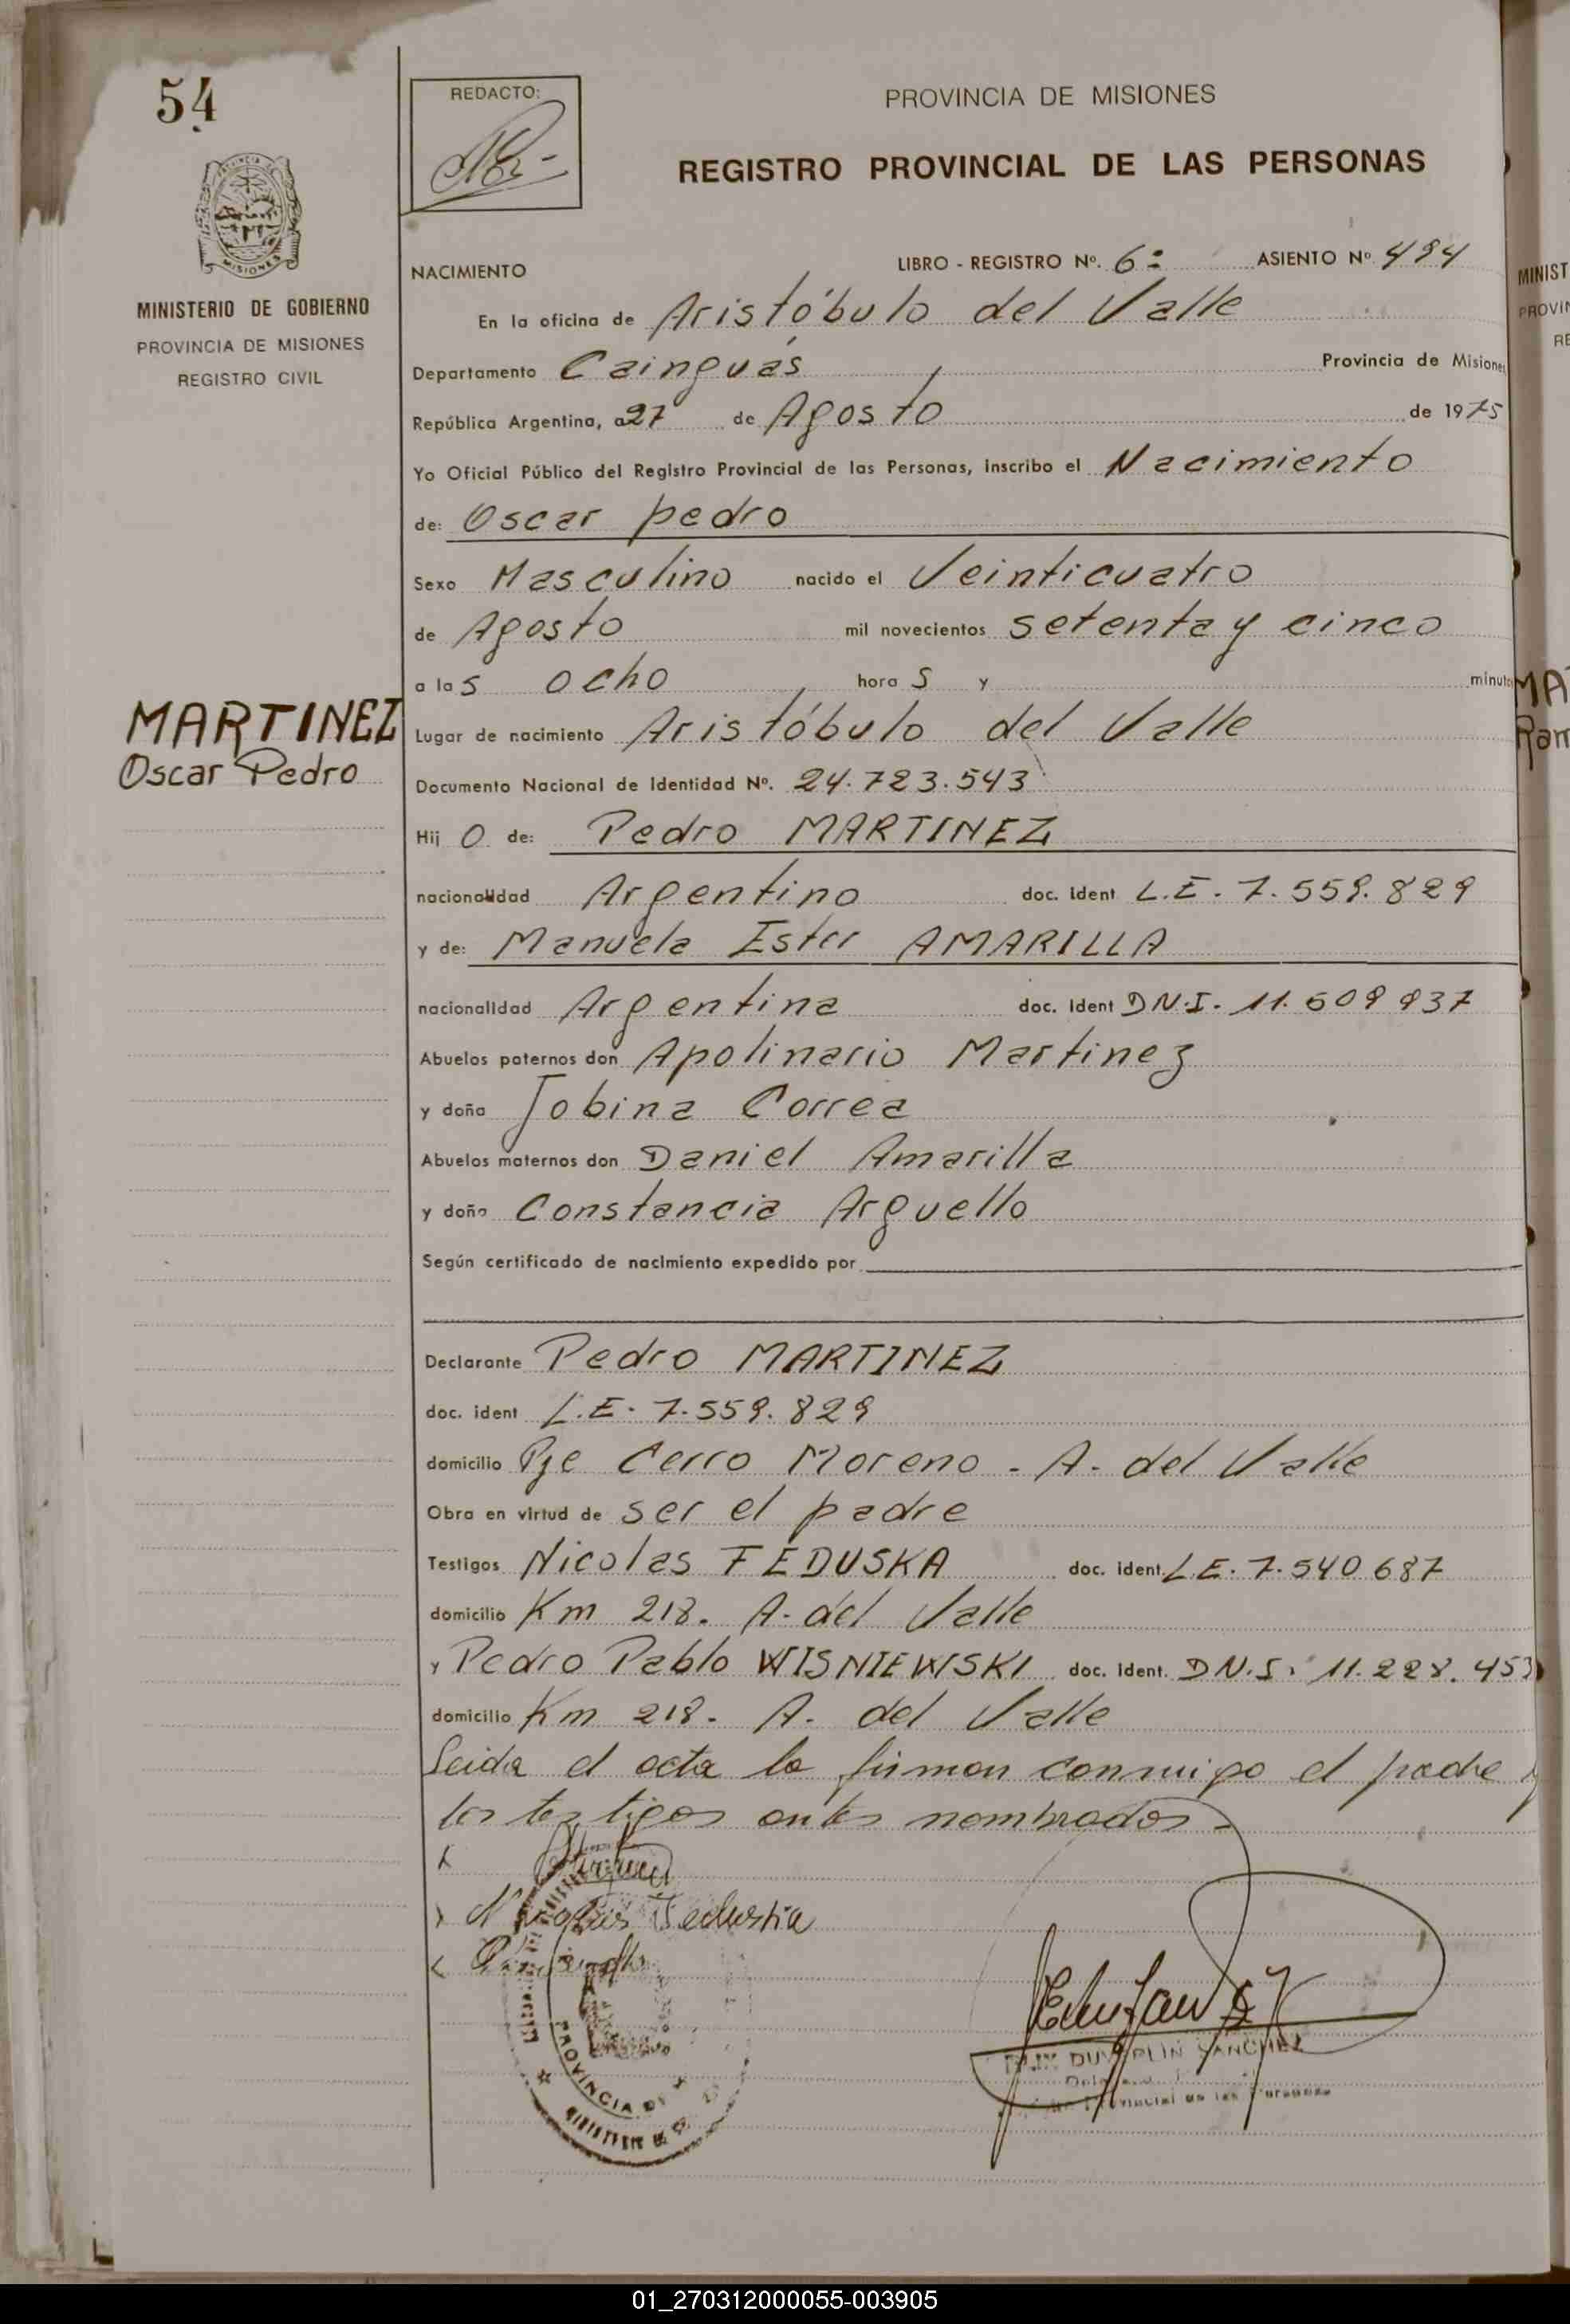 54
REDACTO:
PROVINCIA DE MISIONES
REGISTRO PROVINCIAL DE LAS PERSONAS
MISIONES
MINISTERIO DE GOBIERNO
PROVINCIA DE MISIONES
REGISTRO CIVIL
NACIMIENTO LIBRO - REGISTRO Nº. 6: ASIENTO Nº 494
En la oficina de Aristóbulo del Valle
Departamento Cainguás Provincia de Misiones
República Argentina, a 27 de Agosto de 1975
Yo Oficial Público del Registro Provincial de las Personas, inscribo el Nacimiento
de: Oscar pedro
Sexo Masculino nacido el Veinticuatro
de Agosto mil novecientos setenta y cinco
a las ocho horas y minuto
MARTINEZ
Oscar Pedro
Lugar de nacimiento Aristóbulo del Valle
Documento Nacional de Identidad Nº. 24.723.543
Hijo de: Pedro MARTINEZ
nacionalidad Argentino doc. ident L.E. 7.559.829
y de: Manuela Ester AMARILLA
nacionalidad Argentina doc. ident D.N.I. 11.609 937
Abuelos paternos don Apolinario Martinez
y doña Jobina Correa
Abuelos maternos don Daniel Amarilla
y doña Constancia Arguello
Según certificado de nacimiento expedido por
Declarante Pedro MARTINEZ
doc. ident L.E. 7.559.829
domicilio Pje Cerro Moreno - A. del Valle
Obra en virtud de ser el padre
Testigos Nicolas FEDUSKA doc. ident. L.E. 7.540 687
domicilio Km 218. A. del Valle
y Pedro Pablo WISNIEWSKI doc. ident. D.N.I. 11.228.453
domicilio Km 218. A. del Valle
Leida el acta la firman conmigo el padre y
los testigos antes nombrados.
PROVINCIA DE
SANCHEZ
Provincial de las Personas
MINIST
PROVIN
RE
MA
Ram
01_270312000055-003905